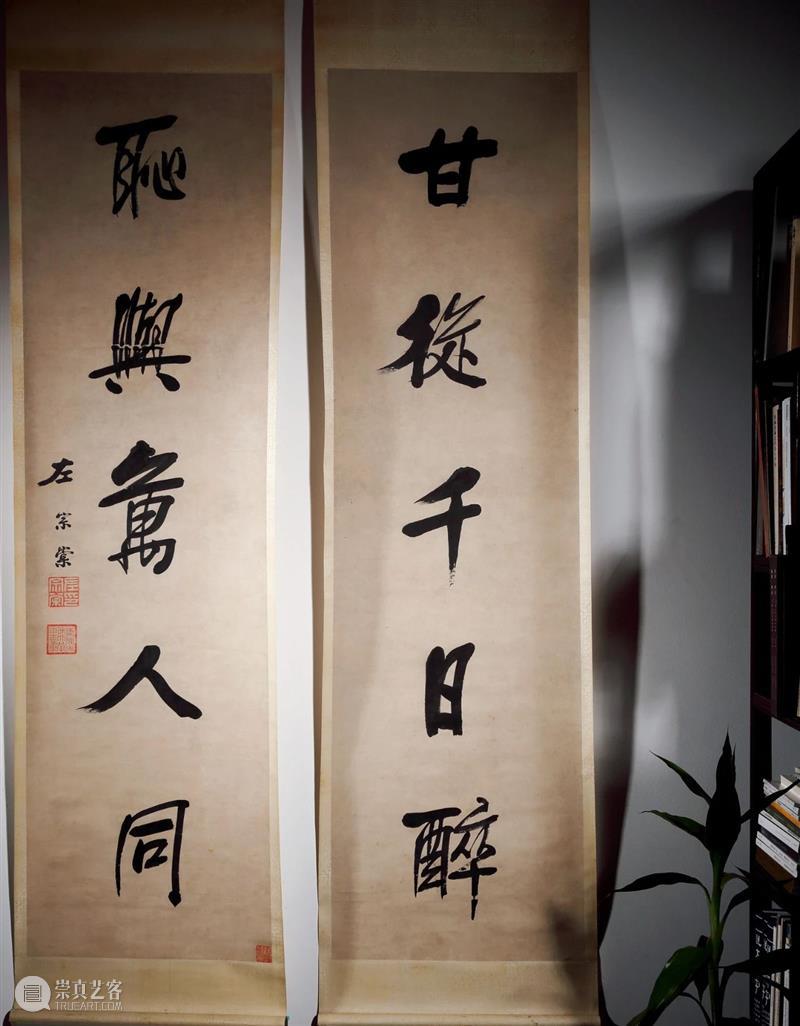 甘從千日醉
恥與萬人同
左宗棠
崇真艺客
TRUEART.COM